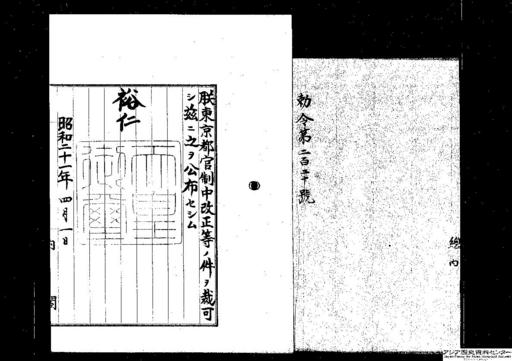 勅令第二百二十號
朕東京都官制中改正等ノ件ヲ裁可
シ茲ニ之ヲ公布セシム
裕仁
天皇御璽
昭和二十一年四月一日
内閣
アジア歴史資料センター